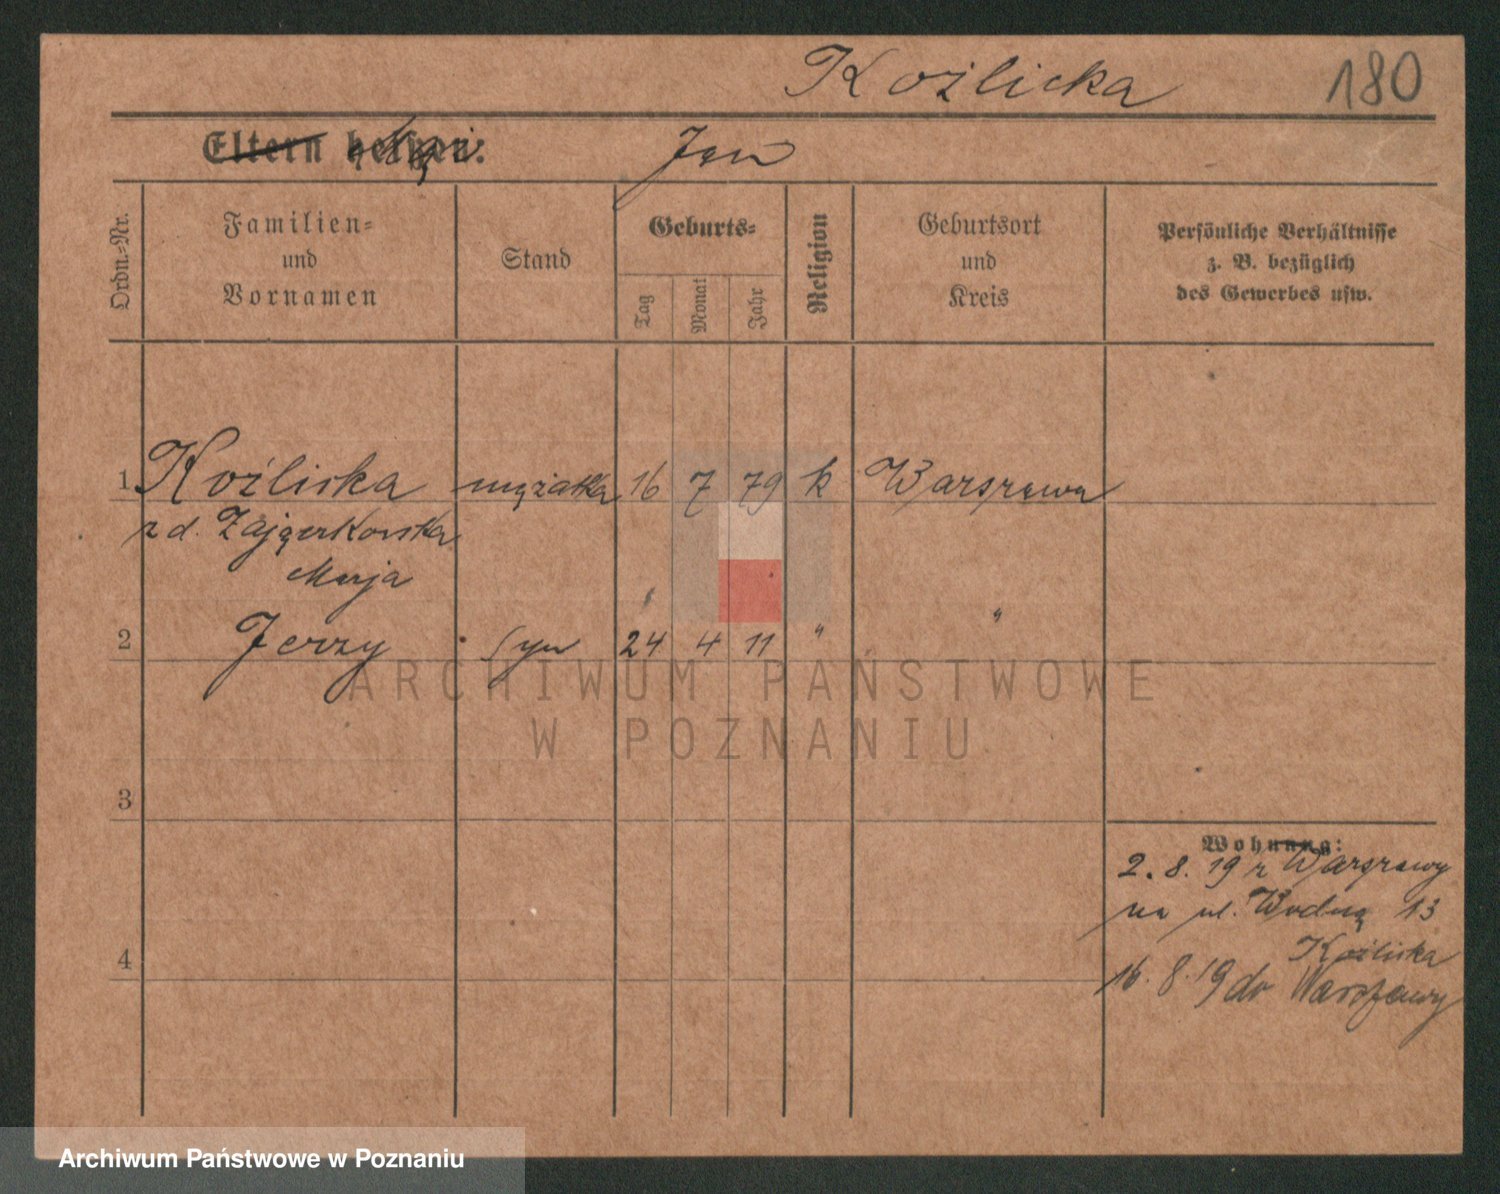 Koźlicka 180
Eltern heißen: Mąż Jan
Ordn.-Nr.
Familien-
und
Vornamen
Stand
Geburts-
Tag
Monat
Jahr
Religion
Geburtsort
und
Kreis
Persönliche Verhältnisse
z. B. bezüglich
des Gewerbes usw.
1 Koźlicka mężatka 16 7 79 k Warszawa
z d.
Marja
2 Jerzy syn 24 4 11 " "
ARCHIWUM PAŃSTWOWE
W POZNANIU
3
Wohnung:
2. 8. 19 z Warszawy
na ul. Wodną 13
Koźlicka
4
16. 8. 19 do Warszawy
Archiwum Państwowe w Poznaniu